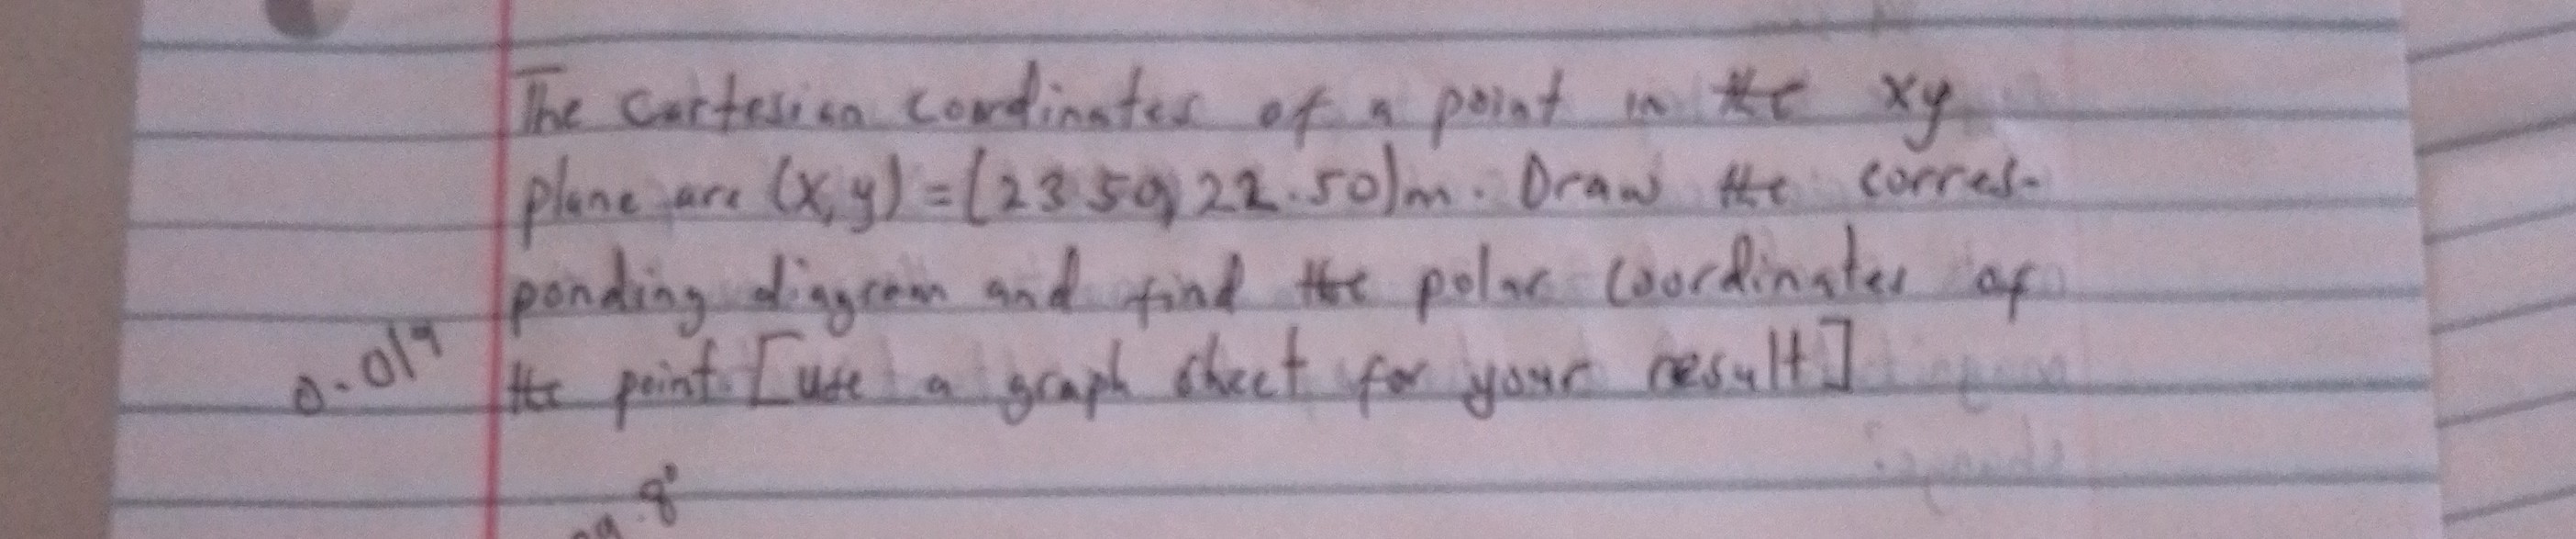 The Cartesian coordinates of a point in the xy
plane are (x,y) = (23 50, 22.50)m. Draw the corres-
ponding diagram and find the polar coordinates of
the point. [use a graph sheet for your result]
0.019
.8°